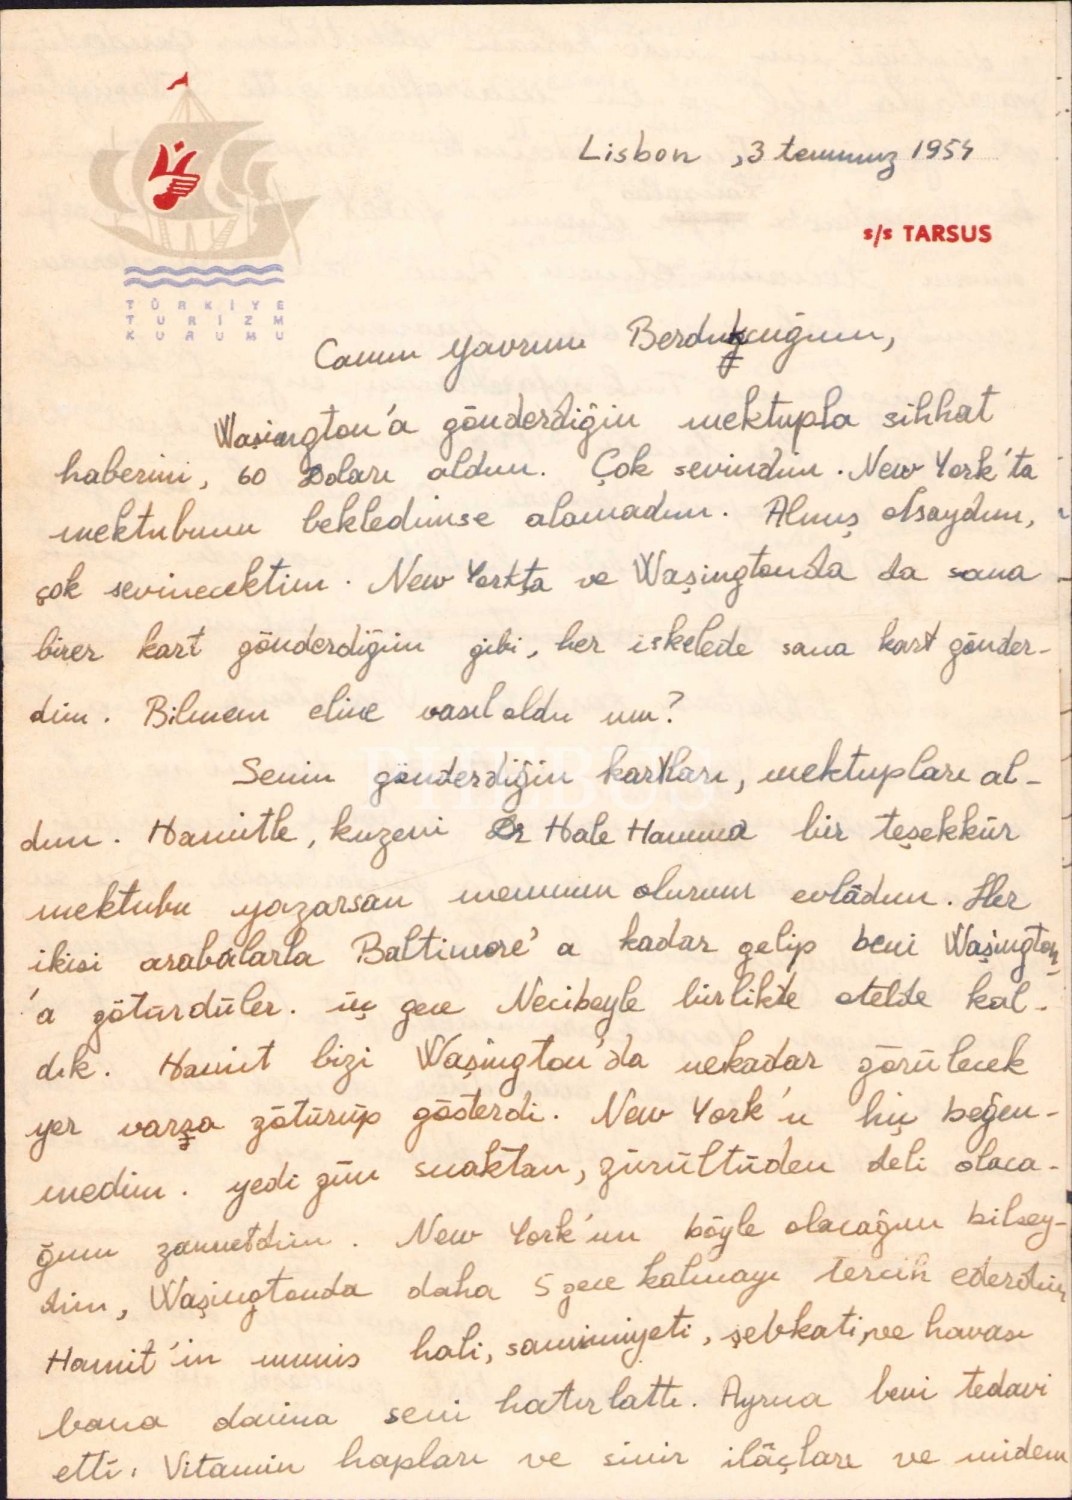 Lisbon, 3 temmuz 1954
s/s TARSUS
TÜRKİYE
TURİZM
KURUMU
Canım yavrum Berdukcuğum,
Waşington'a gönderdiğin mektupla sıhhat
haberini, 60 Doları aldım. Çok sevindim. New York'ta
mektubunu bekledimse alamadım. Almış olsaydım,
çok sevinecektim. New Yorkta ve Waşingtonda da sana
birer kart gönderdiğim gibi, her iskelede sana kart gönder-
dim. Bilmem eline vasıl oldu mu?
Senin gönderdiğin kartları, mektupları al-
dım. Hamitle, kuzeni Dr Hale Hanıma bir teşekkür
mektubu yazarsan memnun olurum evlâdım. Her
ikisi arabalarla Baltimore'a kadar gelip beni Waşington
'a götürdüler. üç gece Necibeyle birlikte otelde kal-
dık. Hamit bizi Waşington'da nekadar görülecek
yer varsa götürüp gösterdi. New York'u hiç beğen-
medim. yedi gün sıcaktan, gürültüden deli olaca-
ğım zannetdim. New York'un böyle olacağını bilsey-
dim, Waşingtonda daha 5 gece kalmayı tercih ederdim
Hamit'in munis hali, samimiyeti, şebkati, ve havası
bana daima seni hatırlattı. Ayrıca beni tedavi
etti. Vitamin hapları ve sinir ilâçları ve midem
PHEBUS